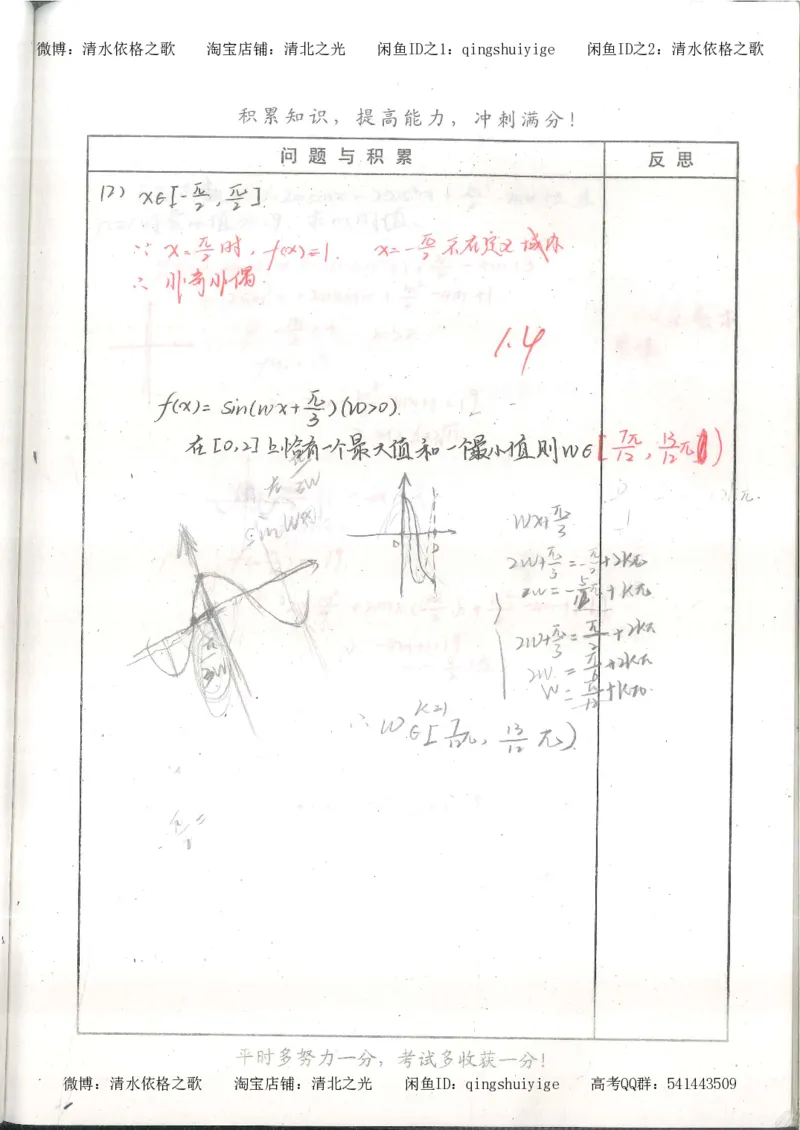 微博：清水依格之歌 淘宝店铺：清北之光 闲鱼ID之1：qingshuiyige 闲鱼ID之2：清水依格之歌
积累知识，提高能力，冲刺满分！
问题与积累 反思
(2) x∈[-π/2, π/2].
∵ x=π/2时，f(x)=1. x=-π/2不在定义域内.
∴ 非奇非偶.
1.4
f(x)= sin(wx+π/3)(w>0).
在[0,2]上恰有一个最大值和一个最小值则w∈[7π/12, 13/12π)
wx+π/3
2w+π/3=-π/2+2kπ
2w=-5/6π+kπ
2w+π/3=π/2+2kπ
2w=π/6+2kπ
w=π/12+kπ.
∴ w∈[7/12π, 13/12π).
平时多努力一分，考试多收获一分！
微博：清水依格之歌 淘宝店铺：清北之光 闲鱼ID：qingshuiyige 高考QQ群：541443509